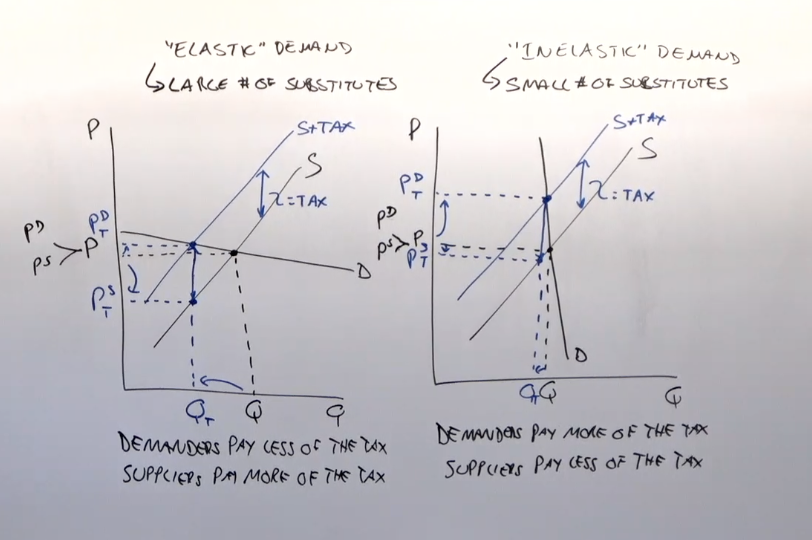 "ELASTIC" DEMAND
↳ LARGE # OF SUBSTITUTES
P
S+TAX
S
τ=TAX
P^D_T
P^D
P^S > P
P^S_T
D
Q_T
Q
Q
DEMANDERS PAY LESS OF THE TAX
SUPPLIERS PAY MORE OF THE TAX
"INELASTIC" DEMAND
↳ SMALL # OF SUBSTITUTES
P
S+TAX
S
τ=TAX
P^D_T
P^D
P^S > P
P^S_T
D
Q_T
Q
Q
DEMANDERS PAY MORE OF THE TAX
SUPPLIERS PAY LESS OF THE TAX